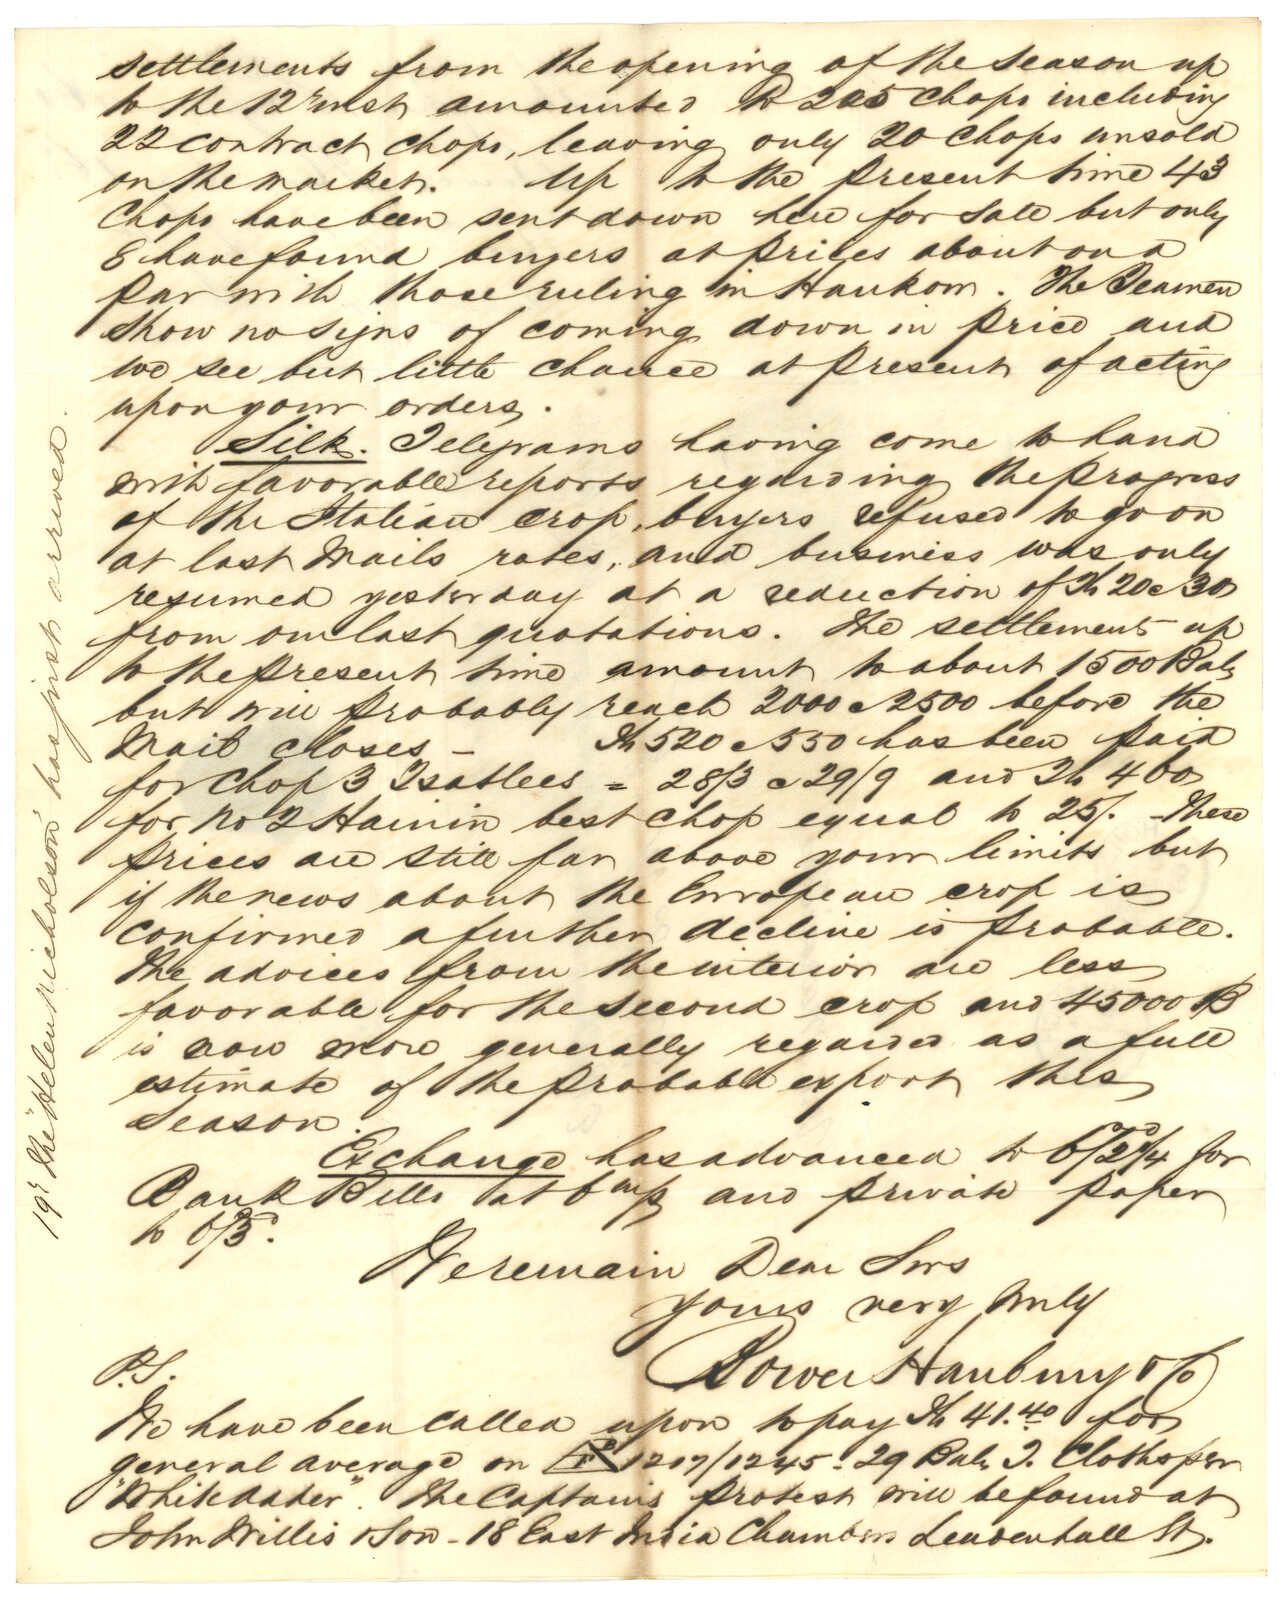 settlements from the opening of the season up
to the 12th inst amounted to 205 Chops including
22 contract chops, leaving only 20 Chops unsold
on the market. Up to the present time 43
Chops have been sent down here for sale but only
8 have found buyers at prices about on a
par with those ruling in Hankow. The Teamen
show no signs of coming down in price and
we see but little chance at present of acting
upon your orders.
Silk. Telegrams having come to hand
with favorable reports regarding the progress
of the Italian crop, buyers refused to go on
at last Mails rates, and business was only
resumed yesterday at a reduction of Tls 20 @ 30
from our last quotations. The settlements up
to the present time amount to about 1500 Bales
but will probably reach 2000 @ 2500 before the
Mail closes - Tls 520 @ 530 has been paid
for Chop 3 Tsatlees = 28/3 @ 29/9 and Tls 400
for No 2 Hainin best chop equal to 25/. - These
prices are still far above your limits but
if the news about the European crop is
confirmed a further decline is probable.
The advices from the interior are less
favorable for the second crop and 45000 B
is now more generally regarded as a full
estimate of the probable export this
Season.
Exchange has advanced to 6/2¾ for
Bank Bills at 6 m/s and private paper
to 6/3d.
We remain Dear Sirs
Yours very truly
Bower Hanbury & Co
P.S.
We have been called upon to pay Tls 41.40 for
general average on 1217/1245 - 29 Bales T. Cloths per
"White Adder". The Captain's protest will be found at
John Willis & Son - 18 East India Chambers Leadenhall St.
19th The "Helen Nicholson" has just arrived.